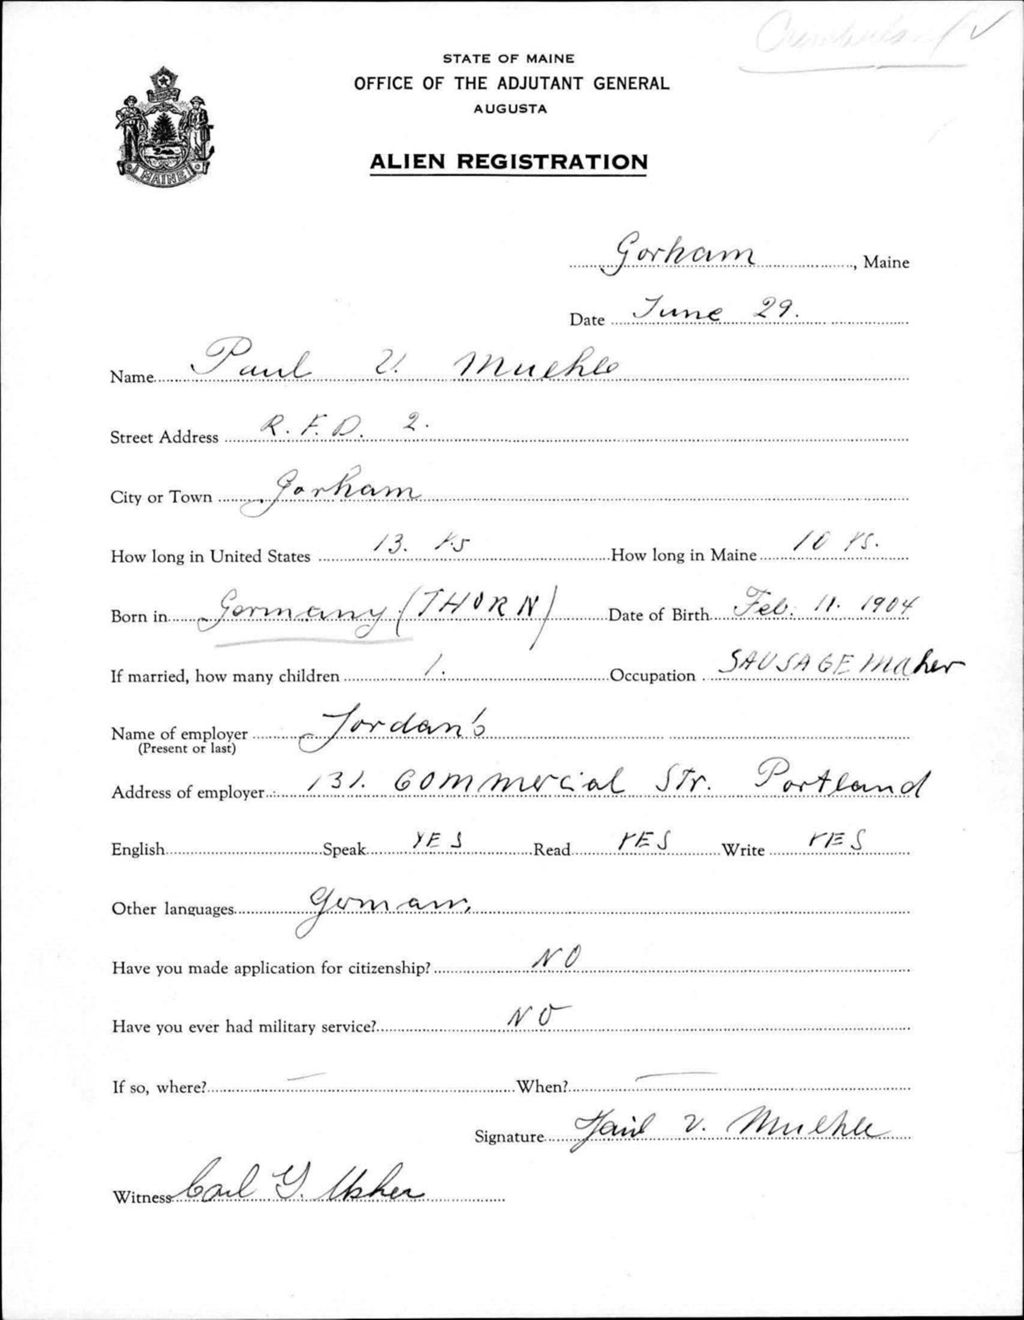 Cumberland ✓
STATE OF MAINE
OFFICE OF THE ADJUTANT GENERAL
AUGUSTA
MAINE
ALIEN REGISTRATION
Gorham, Maine
Date June 29.
Name Paul V. Muehle
Street Address R.F.D. 2.
City or Town Gorham
How long in United States 13. Ys How long in Maine 10 Ys.
Born in Germany (THORN) Date of Birth Feb. 11. 1904
If married, how many children 1. Occupation SAUSAGE Maker
Name of employer Jordan's
(Present or last)
Address of employer 131. Commercial Str. Portland
English Speak YES Read YES Write YES
Other languages German
Have you made application for citizenship? NO
Have you ever had military service? NO
If so, where? — When? —
Signature Paul V. Muehle
Witness Carl G. Usher